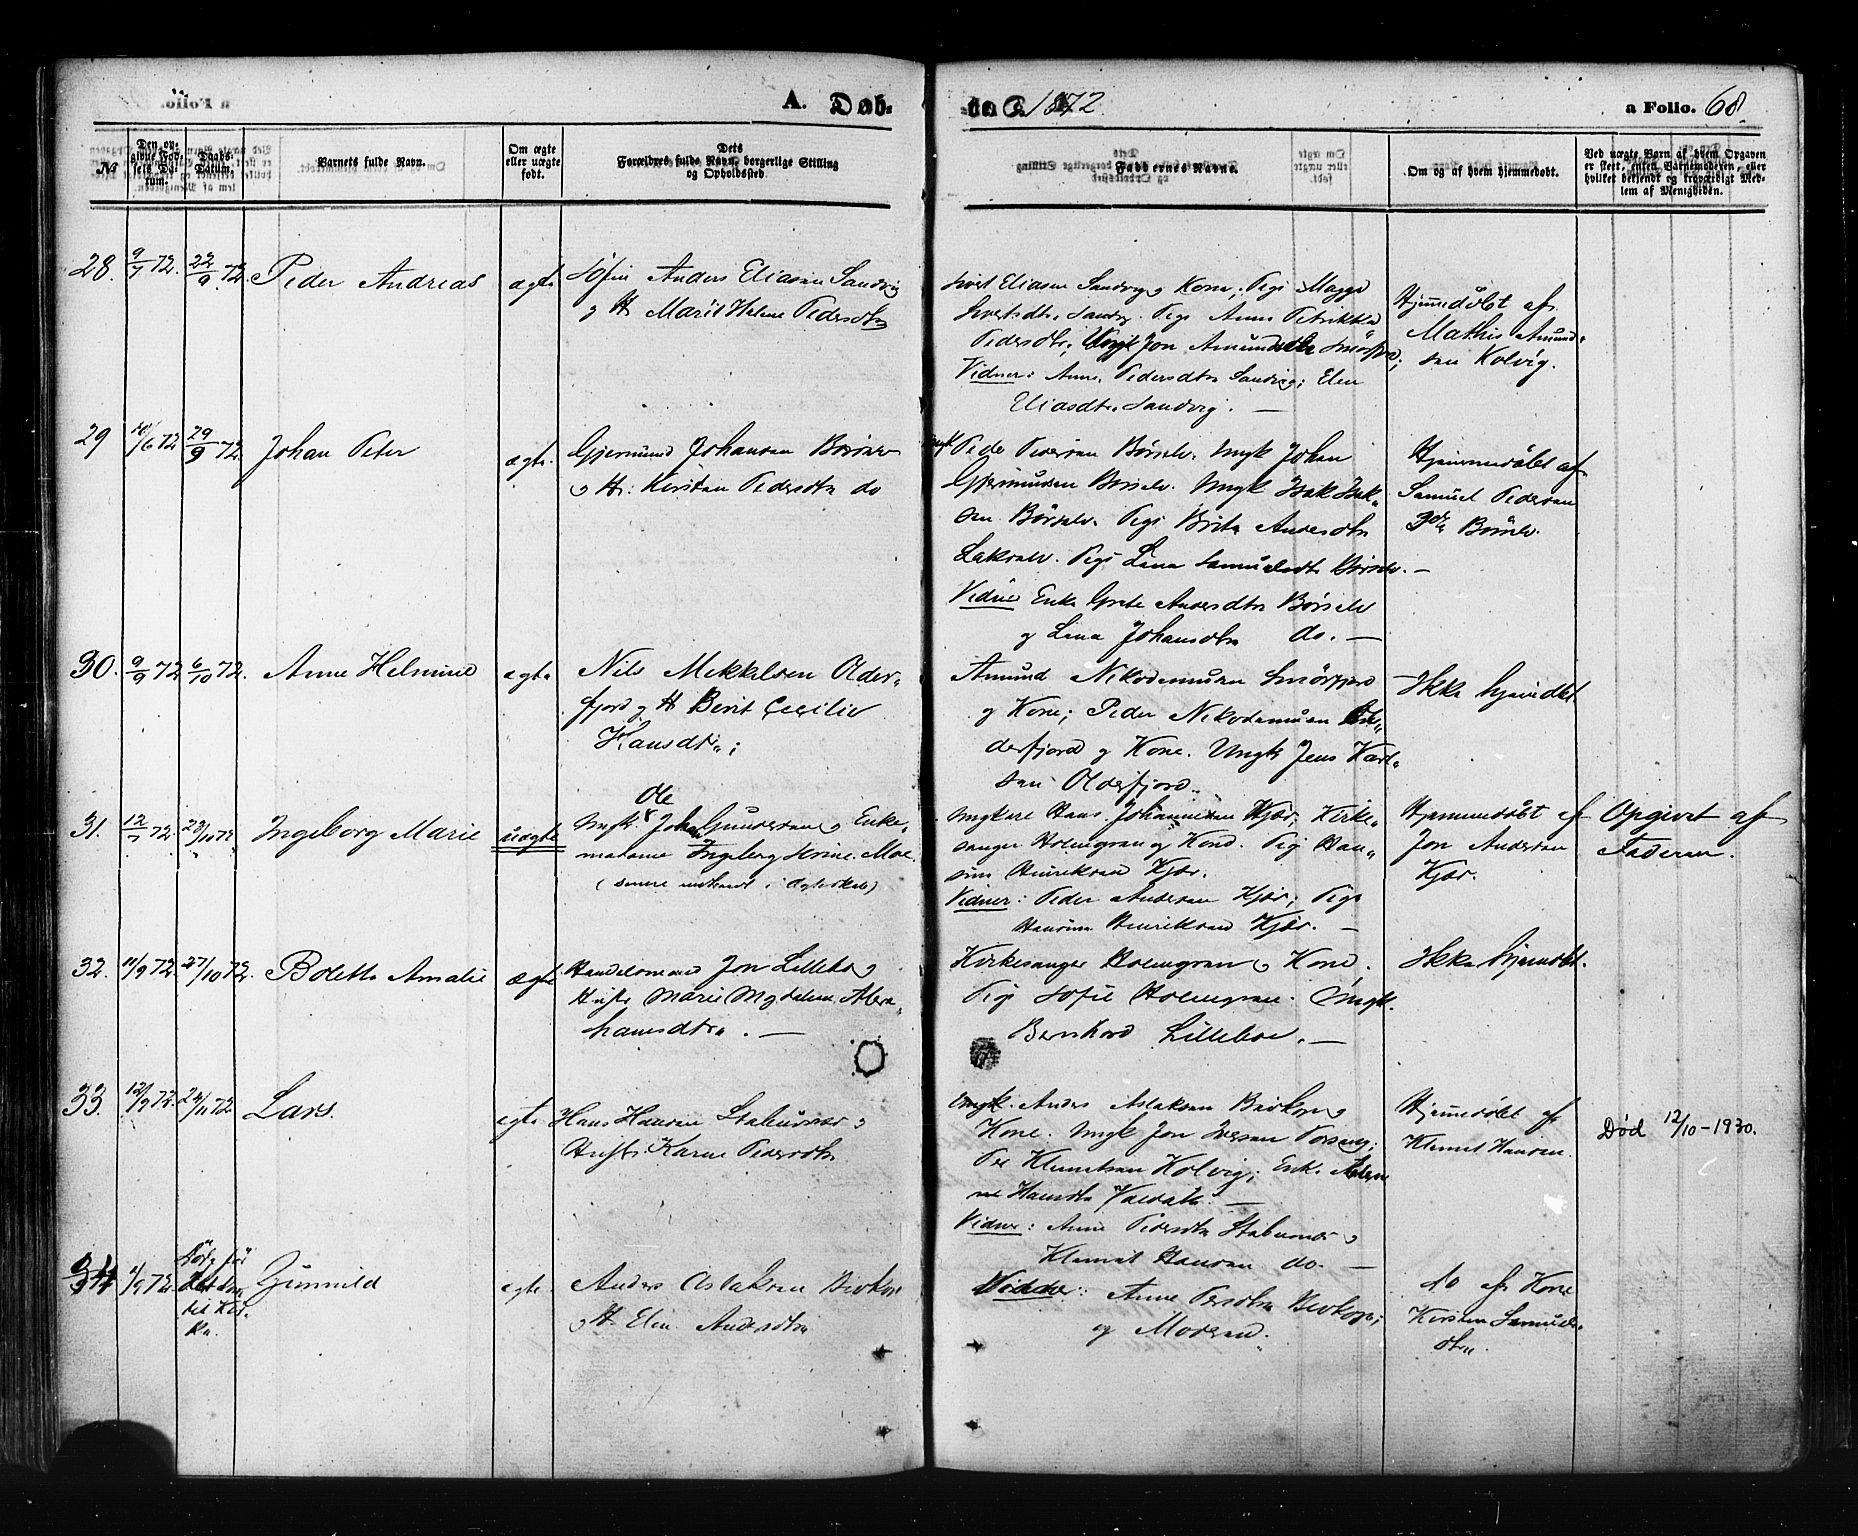 A. Døb-
te. 1872.
a Folio. 68.
№
Den op-
givne Fød-
sels Da-
tum.
Daabs-
Datum.
Barnets fulde Navn.
Om ægte
eller uægte
født.
Dets
Forældres fulde Navn, borgerlige Stilling
og Opholdssted.
Faddernes Navne.
Om og af hvem hjemmedøbt.
Ved uægte Barn af hvem Opgaven
er skeet, enten Barnemoderen, eller
hvilket bekjendt og troværdigt Med-
lem af Menigheden.
28. 9/7 72. 22/9 72. Peder Andreas
ægte
Anders Eliasen Sandvig
og H. Marit Helene Pedersdtr
Eliasen Sandvig og Kone; Pige Magga
Sivertsdtr. Sandvg. Pige Anne
Pedersdtr; Ungk Jon Amundsen Smörfjord;
Vidner: Anne Pedersdtr Sandvig; Elen
Eliasdtr. Sandvig. —
Hjemmedöbt af
Mathis Amund-
sen Kolvig.
29 /6 72 29/9 72. Johan Peter
ægte.
Gjermund Johansen Börselv
og H: Kirsten Pedersdtr do
Ungk Peder Pedersen Börselv. Ungk Johan
Gjermundsen Börselv. Ungk Isak Isak-
sen Börselv. Pige Brita Andersdtr
Lakselv. Pige Lina Samuelsdtr Börselv. —
Vidner Enke Grete Andersdtr Börselv
og Lina Johansdtr do. —
Hjemmedöbt af
Samuel Pedersen
Börselv.
30. 9/9 72 6/10 72. Anne Helmine
ægte
Nils Mikkelsen Older-
fjord og H Berit Cecilie
Hansdtr;
Amund Nikodemusen Smörfjord
og Kone; Peder Nikodemusen Ol-
derfjord og Kone. Ungk Jens Karl-
sen Olderfjord.
Ikke hjemdbt
31. 12/7 72. 23/10 72. Ingeborg Marie
uægte
Ole
Ungk. Johan Gundersen og Enke-
madame Ingeborg Moe.
(senere indtraadt i Ægteskab)
Ungkarl Hans Johannesen Kjær, Kirke-
sanger Holmgren og Kone. Pig Han-
sine Henriksen Kjær.
Vidner: Peder Andersen Kjær; Pige
Hansine Henriksen Kjær. —
Hjemmedöbt af
Jon Andersen
Kjær.
Opgivet af
Faderen.
32. 11/9 72. 27/10 72. Bolette Amalie
ægte
Handelsmand Jon Lilleboe og
Hustr Marie Magdalene Abra-
hamsdtr. —
Kirkesanger Holmgren og Kone.
Pige Sofie Holmgren. Ungk.
Bernhard Lilleboe. —
Ikke hjemdbt.
33. 12/9 72. 24/11 72 Lars.
ægte
Hans Hansen Stabursnæs og
Hustr Karen Pedersdtr
Ungk. Anders Aslaksen Bevkop og
Kone. Ungk Jon Iversen Porsang;
Per Klemetsen Kolvig; Enk.
Hansdtr —
Vidner: Anne Pedersdtr Stabursnæs og
Klemet Hansen do. —
Hjemmedöbt af
Klemet Hansen.
Død 12/10-1930.
34 /9 72. Död, før
det kom
til Kir-
ke.
Gunnild
ægte.
Anders Aslaksen Bevkop
og H. Elen Andersdtr
Vidner: Anne Persdtr Bevkop;
og Moderen.
do af Kone
Kirsten Samuels-
dtr.